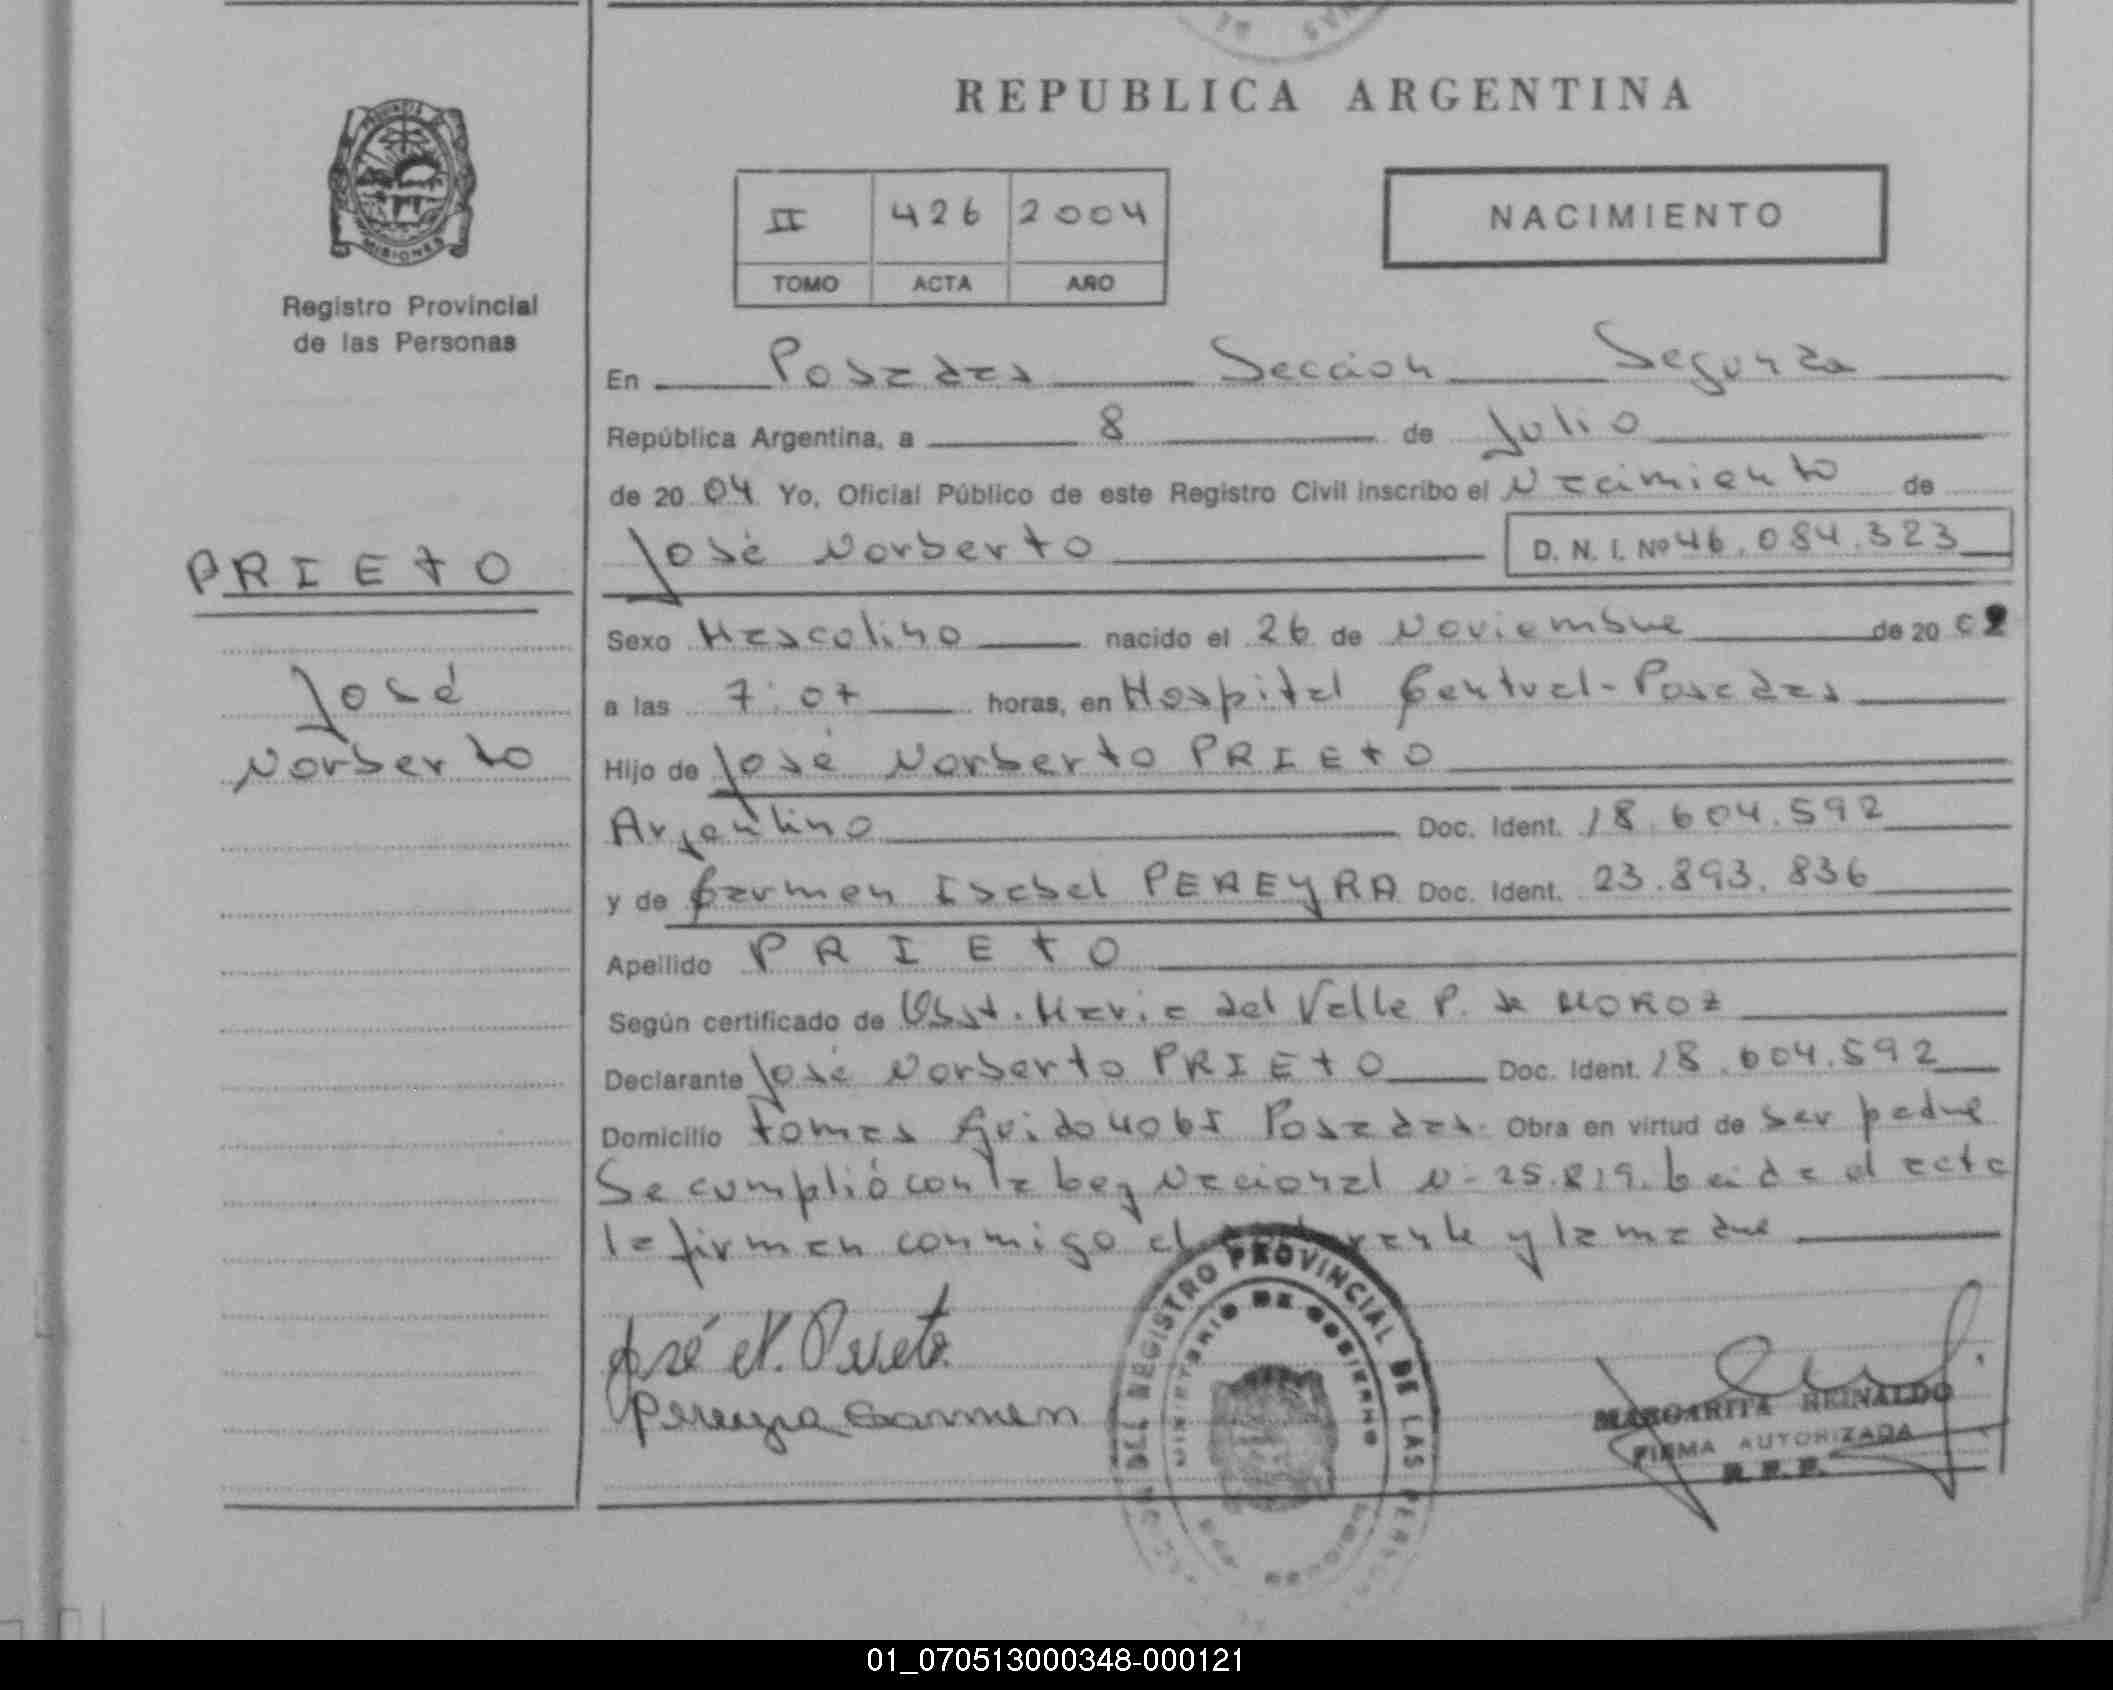 REPUBLICA ARGENTINA
PROVINCIA DE
MISIONES
Registro Provincial
de las Personas
II 426 2004
TOMO ACTA AÑO
NACIMIENTO
En Posadas Sección Segunda
República Argentina, a 8 de Julio
de 2004 Yo, Oficial Público de este Registro Civil inscribo el Nacimiento de
José Norberto D. N. I. Nº 46.084.323
PRIETO
José
Norberto
Sexo Masculino nacido el 26 de Noviembre de 20 02
a las 7:07 horas, en Hospital Central-Posadas
Hijo de José Norberto PRIETO
Argentino Doc. Ident. 18.604.592
y de Carmen Isabel PEREYRA Doc. Ident. 23.893.836
Apellido PRIETO
Según certificado de Obst. Maria del Valle P. de MOROZ
Declarante José Norberto PRIETO Doc. Ident. 18.604.592
Domicilio Tomas Guido 4065 Posadas. Obra en virtud de ser padre
Se cumplió con la Ley Nacional N- 25.819. Leida el acta
la firman conmigo el y la madre
José N. Prieto
Pereyra Carmen
DEL REGISTRO PROVINCIAL DE LAS
MINISTERIO DE GOBIERNO
MARGARITA REINALDO
FIRMA AUTORIZADA
R. P. P.
01_070513000348-000121